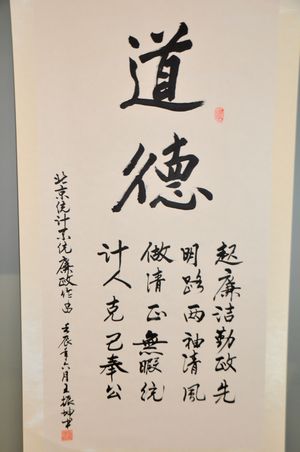 道德
起廉洁勤政先
明路两袖清风
做清正無暇统
计人克己奉公
北京统计系统廉政作品 壬辰年六月王振坤书